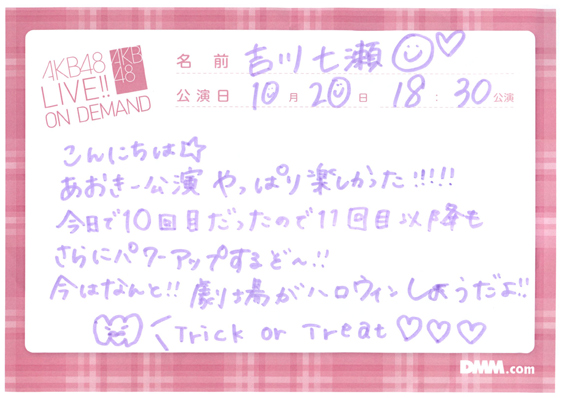 AKB48
LIVE!!
ON DEMAND
AKB
48
名前 吉川七瀬
公演日 10月20日 18:30公演
こんにちは☆
あおきー公演 やっぱり楽しかった!!!!!
今日で10回目だったので11回目以降も
さらにパワーアップするど〜!!
今はなんと!! 劇場がハロウィンしようだよ!!
Trick or Treat♡♡♡
DMM.com